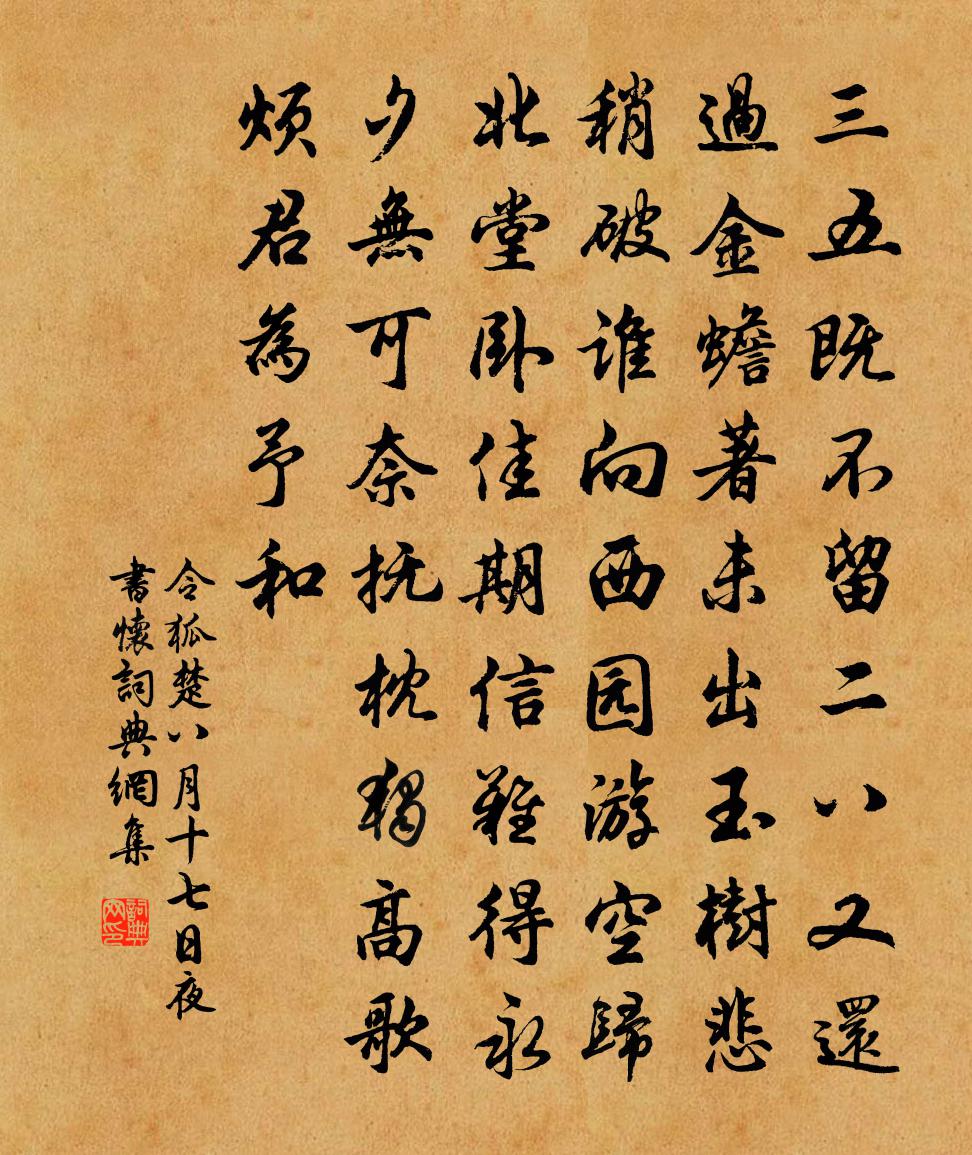 三五既不留二八又還
過金蟾著未出玉樹悲
稍破誰向西园游空歸
北堂卧佳期信難得永
夕無可奈抚枕獨高歌
煩君為予和
令狐楚八月十七日夜
書懷詞典網集
詞典网印